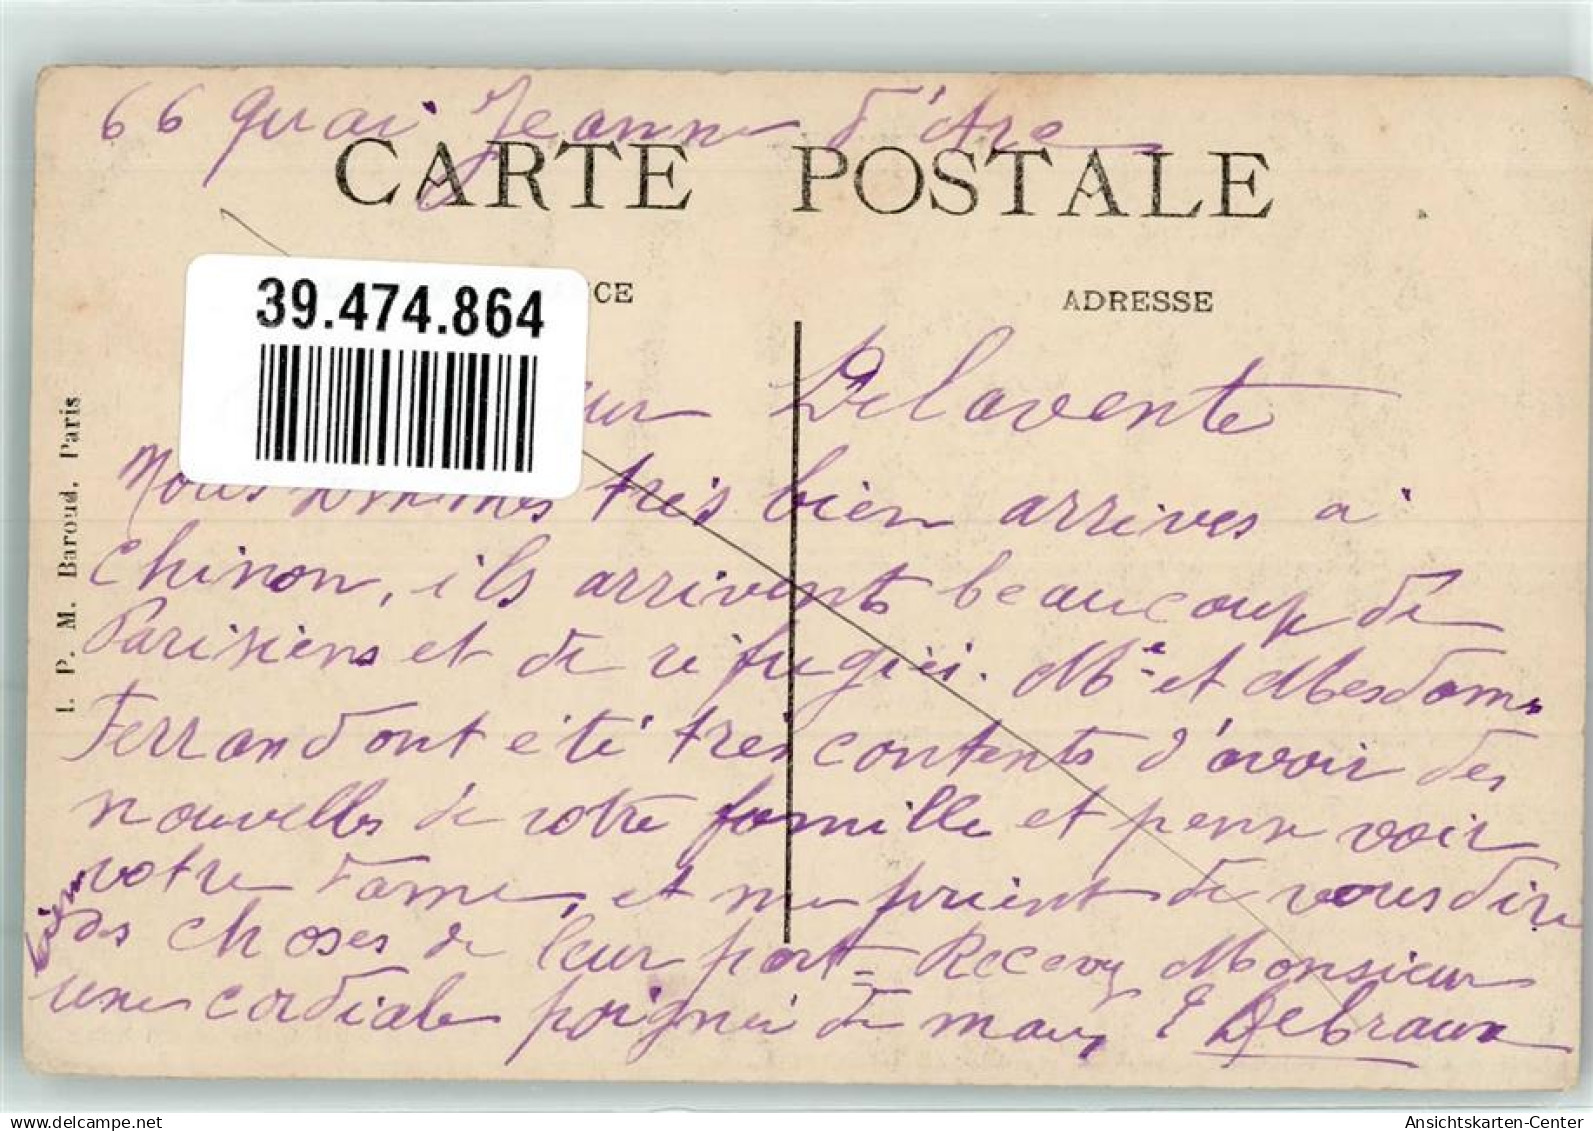 66 quai Jeanne d'Arc
CARTE POSTALE
CE
ADRESSE
39.474.864
ur Delavente
Nous sommes très bien arrives a
Chinon, ils arrivents beaucoup de
Parisiens et de réfugiéi. Mr et Mesdames
Ferrand ont été très contents d'avoir des
nouvelles de votre famille et pense voir
votre Dame, et me prient de vous dire
bien des choses de leur part = Recevez Monsieur
une cordiale poignéi de main E Debraux
I. P. M. Baroud. Paris
AnsichtsKarten-Center